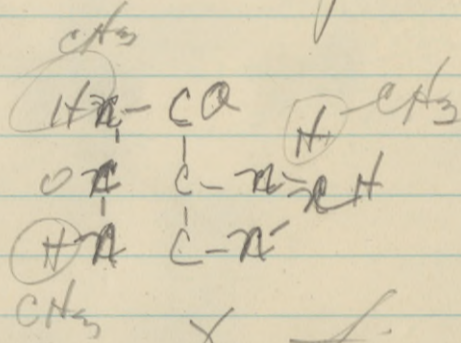 CH3
HN - CO H - CH3
ON C - N = NH
HN C - N
CH3